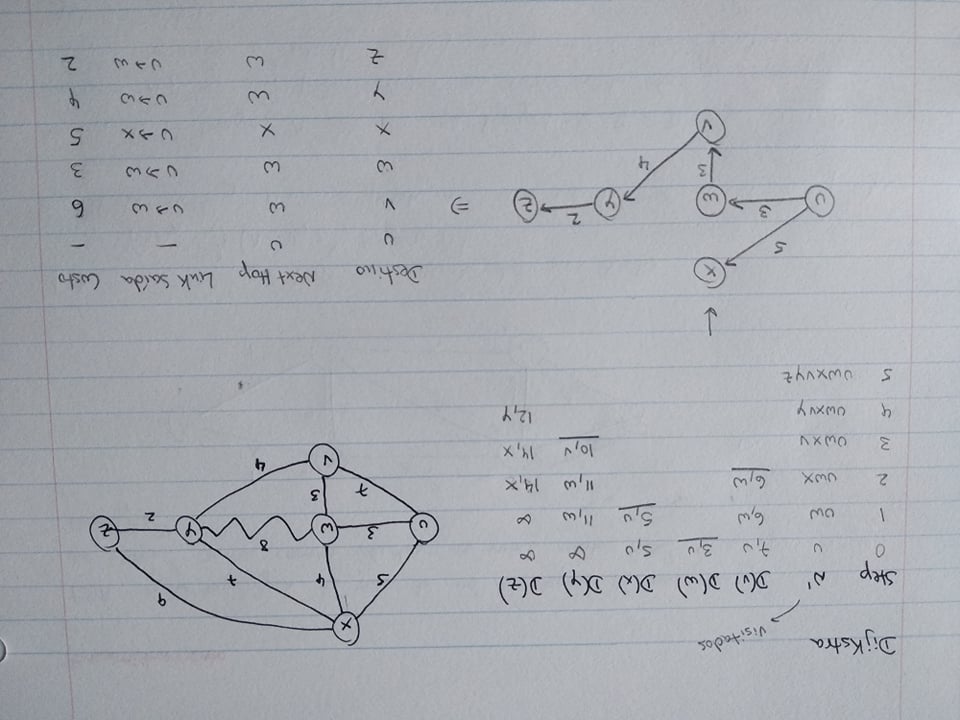 Dijkstra
visitados
Step N' D(v) D(w) D(x) D(y) D(z)
0 u 7,u 3,u 5,u ∞ ∞
1 uw 6,w 5,u 11,w ∞
2 uwx 6,w 11,w 14,x
3 uwxv 10,v 14,x
4 uwxvy 12,y
5 uwxvyz
x
9
5 4 7
8
u 3 w y z
2
7 3
4
v
x
5
3 2
u w y z
3 4
v
⇒
Destino Next Hop Link Saída Custo
u u — —
v w u→w 6
w w u→w 3
x x u→x 5
y w u→w 4
z w u→w 2